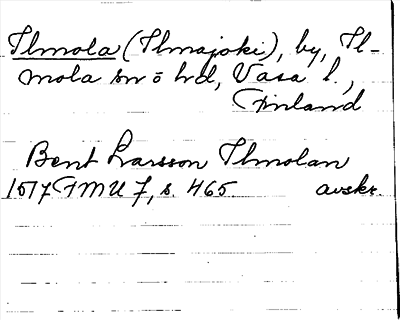 Ilmola (Ilmajoki), by, Il-
mola sn o hd, Vasa l.,
Finland
Bent Larsson Ilmolan
1517 FMU 7, s. 465. avskr.